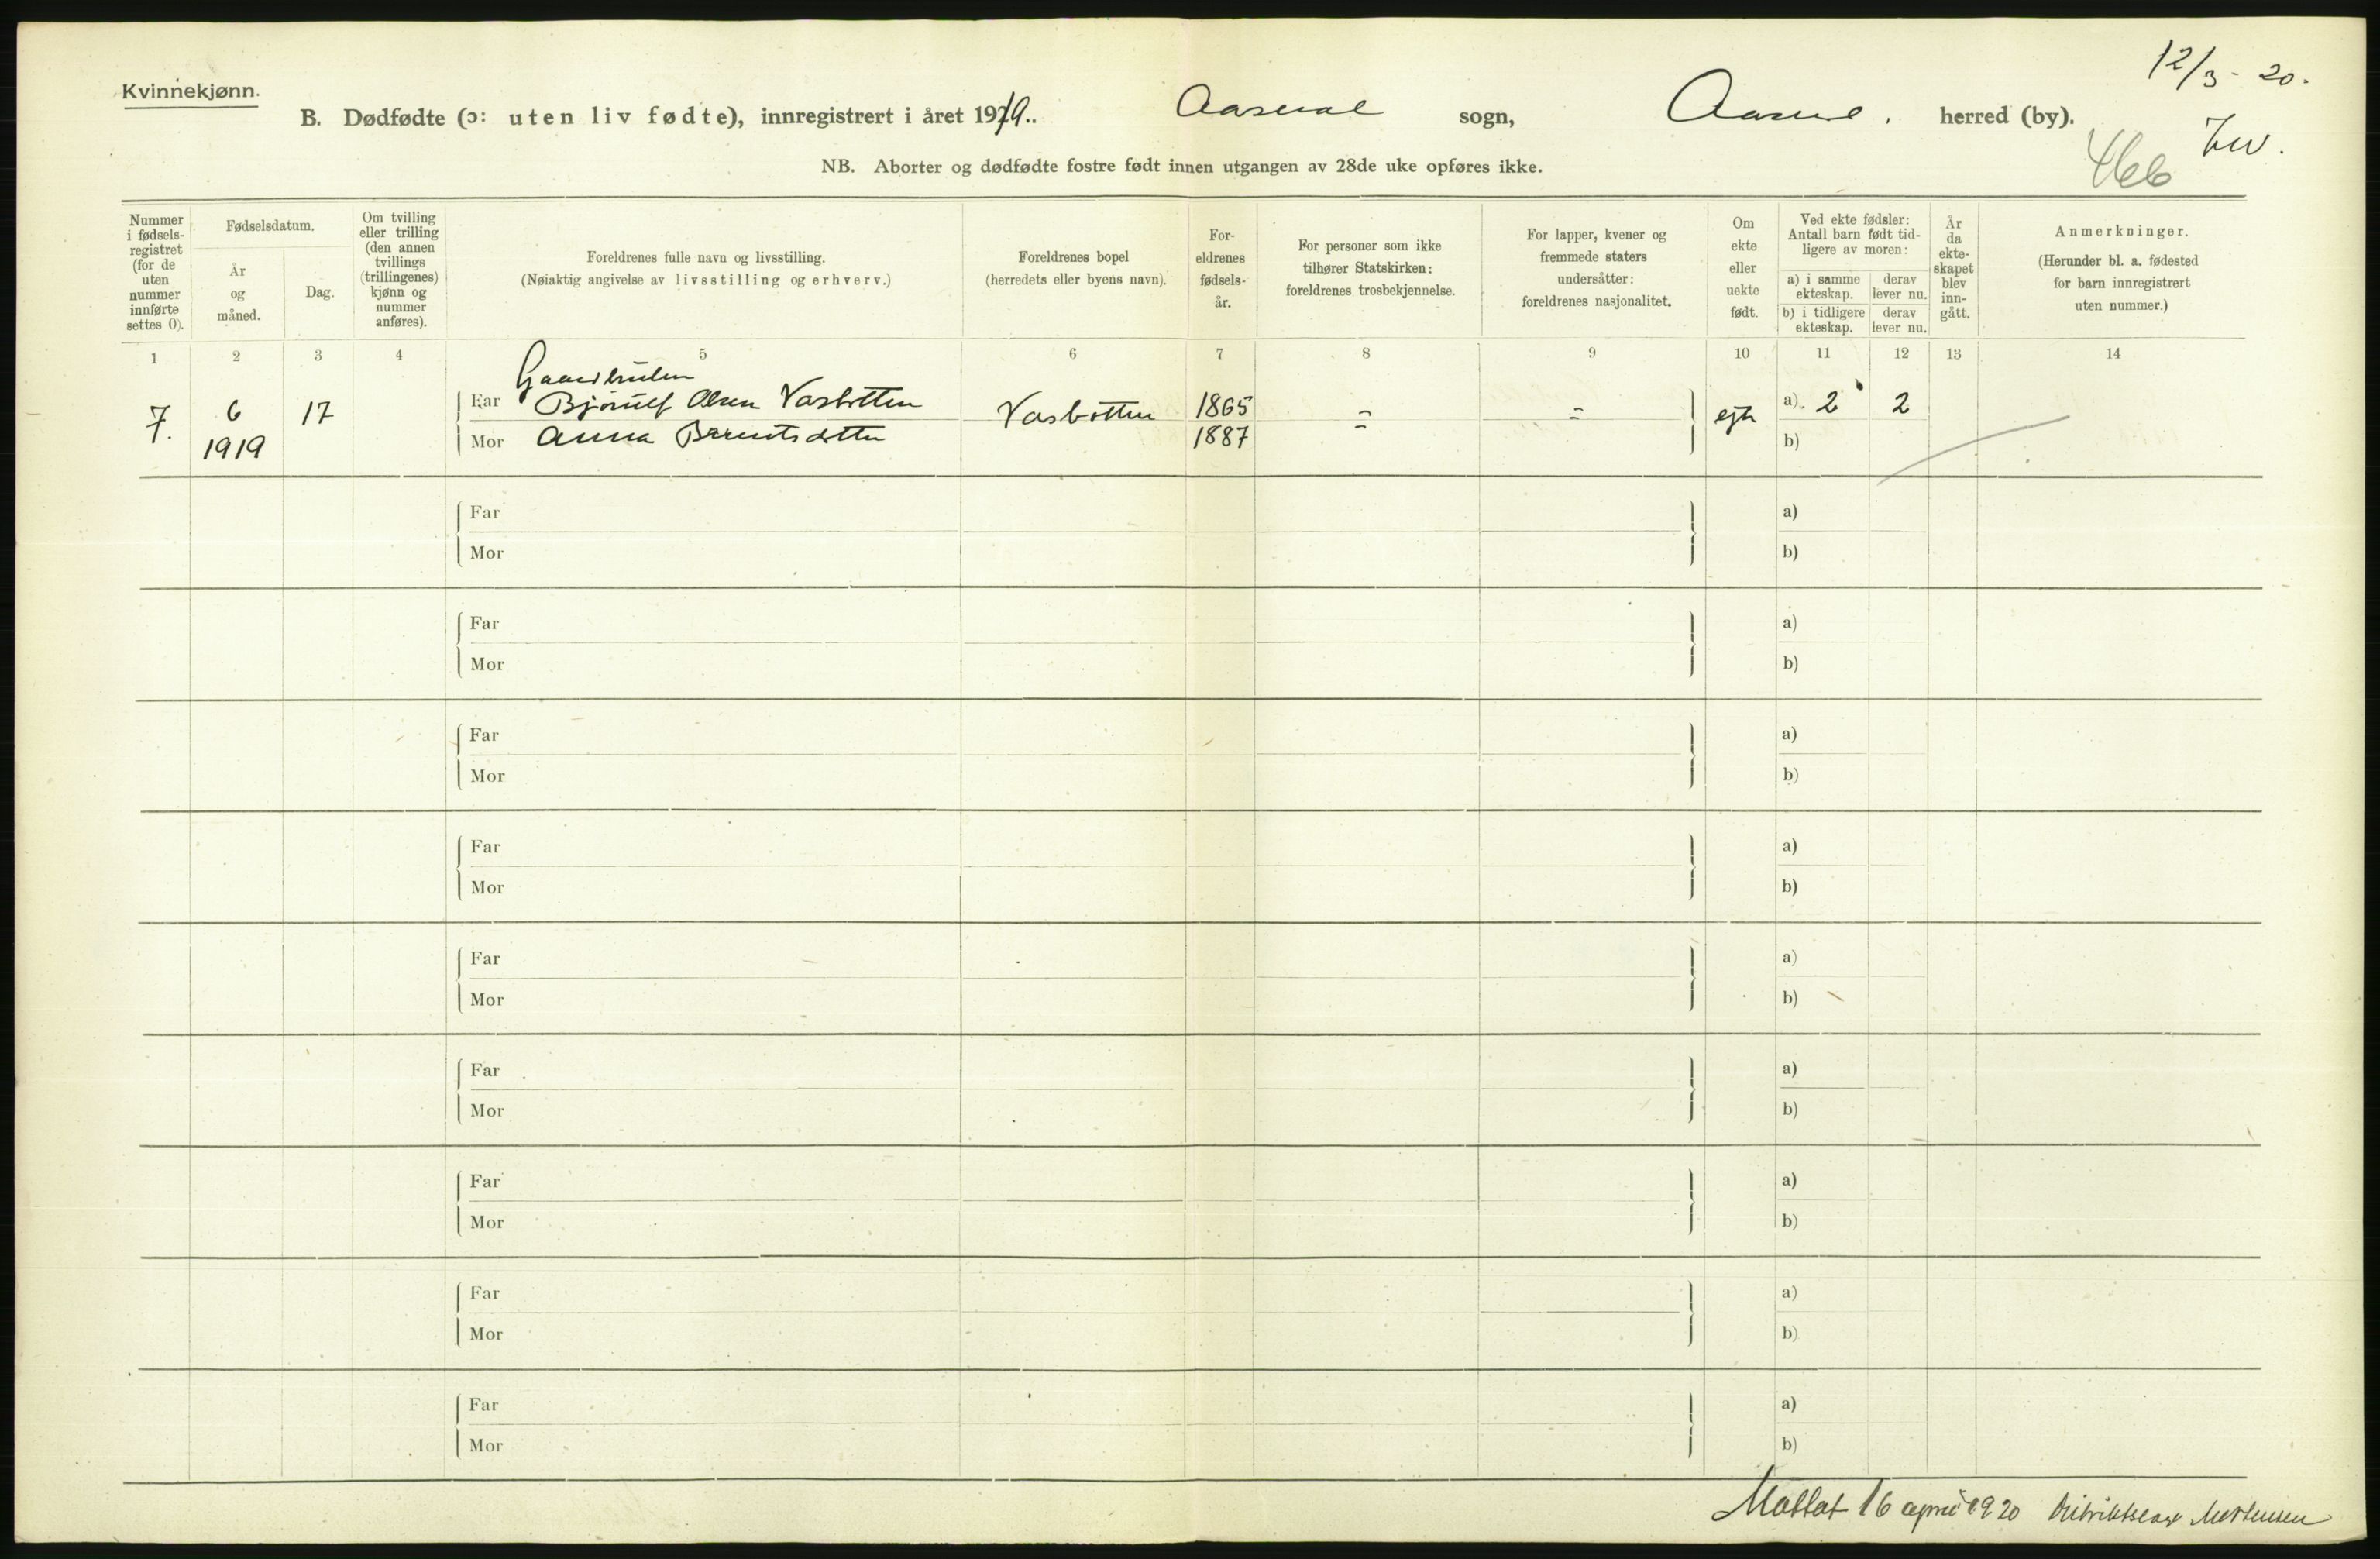 12/3 - 20.
Kvinnekjønn.
B. Dødfødte (ɔ: uten liv fødte), innregistrert i året 1919.. Aaseral sogn, Aaseral. herred (by).
466
NB. Aborter og dødfødte fostre født innen utgangen av 28de uke opføres ikke.
Nummer i fødsels-registret (for de uten nummer innførte settes 0).
Fødselsdatum.
År og måned.
Dag.
Om tvilling eller trilling (den annen tvillings (trillingenes) kjønn og nummer anføres).
Foreldrenes fulle navn og livsstilling.
(Nøiaktig angivelse av livsstilling og erhverv.)
Foreldrenes bopel
(herredets eller byens navn).
For-eldrenes fødsels-år.
For personer som ikke tilhører Statskirken: foreldrenes trosbekjennelse.
For lapper, kvener og fremmede staters undersåtter: foreldrenes nasjonalitet.
Om ekte eller uekte født.
Ved ekte fødsler: Antall barn født tid-ligere av moren:
a) i samme ekteskap.
derav lever nu.
b) i tidligere ekteskap.
derav lever nu.
År da ekte-skapet blev inn-gått.
Anmerkninger.
(Herunder bl. a. fødested for barn innregistrert uten nummer.)
1 2 3 4 5 6 7 8 9 10 11 12 13 14
Gaardbruker
7. 6 17 Far Bjørnulf Olsen Vasbotten Vasbotten 1865 = = egte a) 2 2
1919 Mor Anna Berntsdotter 1887 b)
Far a)
Mor b)
Far a)
Mor b)
Far a)
Mor b)
Far a)
Mor b)
Far a)
Mor b)
Far a)
Mor b)
Far a)
Mor b)
Far a)
Mor b)
Far a)
Mor b)
Mottat 16 april 1920 Distriktslæge Mortensen